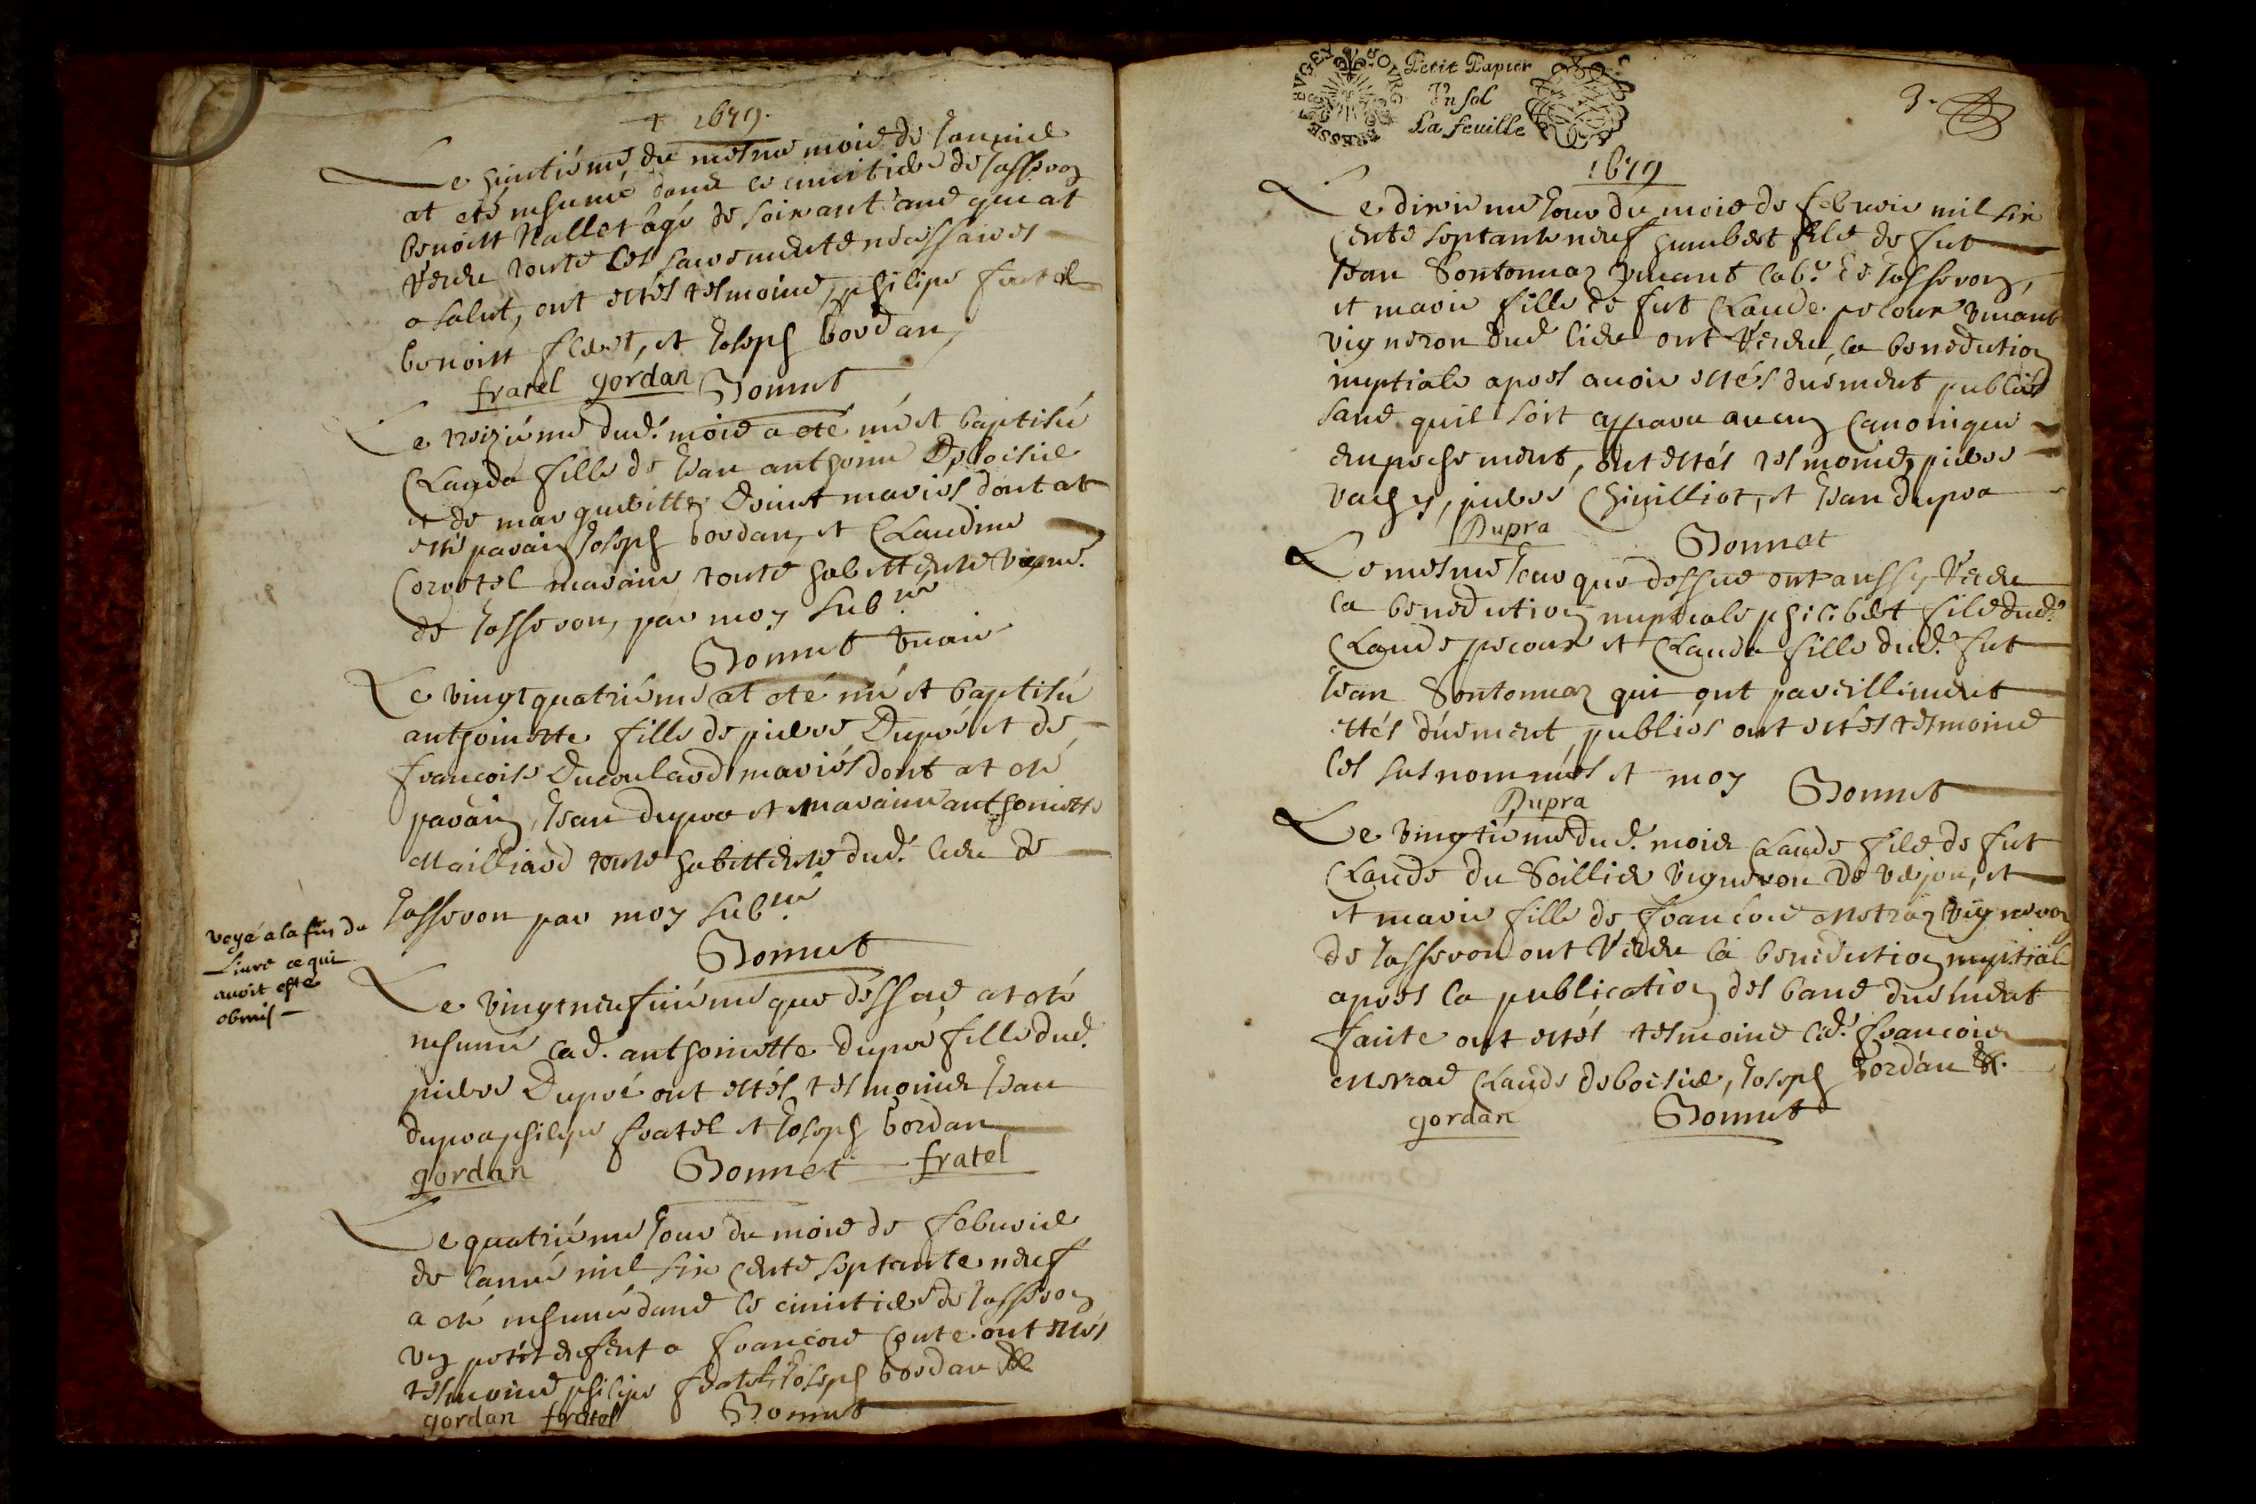 1679.
Le huictiéme du mesme mois de Janvier
at eté inhumé dans le cimitiere de Jasseron
benoist Nallet âgé de soixant'ans qui at
receu touts les sacrements necessaires
a salut, ont estés tesmoins, philipe fratel
benoist , et Joseph Gordan,
fratel gordan Bonnet
Le treiziéme dud. mois a eté né et baptisée
Clauda fille de Jean anthoine Deboisier
et de margueritte mariés dont at
esté parain Joseph Gordan, et Claudine
maraine touts habittents
de Jasseron, par moy sub.né
Bonnet vicaire
Le vingt quatriéme at eté née et baptisée
anthoinette fille de pierre Dupré et de
francoise Ducoulard mariés dont at eté
parain, Jean dupra et maraine anthoinette
Mailliard touts habittents dud. lieu de
Jasseron par moy sub.né
Bonnet
voyé a la fin du
Livre ce qui
avoit esté
obmis
Le vingt neufiéme que dessus at eté
inhumé lad. anthoinette dupré fille dud.
pierre Dupré ont estés tesmoins Jean
dupra philipe fratel et Joseph Gordan
gordan Bonnet fratel
Le quatriéme Jour du mois de febvrier
de l'année mil six cents septante neuf
a eté inhumé dans le cimitiere de Jasseron
un petit enfent a francois Conte ont estés
tesmoins philipe fratel, Joseph Gordan &c
gordan fratel Bonnet
BRESSE BVGEY BOVRG
Petit Papier
Vn sol
La feuille
3.
1679
Le dixiéme Jour du mois de febvrier mil six
cents septante neuf humbert fils de fut
Jean Sontonnaz vivant lab.r de Jasseron,
et marie fille de fut Claude pecour vivant
vigneron dud. lieu ont receu la benediction
nuptiale apres avoir estés dúement publiés
sans quil soit apparu aucun canonique
empeschement, ont estés tesmoins pierre
vachy, pierre Chivilliot, et Jean dupra
Dupra Bonnet
Le mesme Jour que dessus ont aussy receu
la benediction nuptiale philibert fils dud.
Claude pecour et Clauda fille dud. fut
Jean Sontonnaz qui ont pareillement
ettés dúement publies ont estés tesmoins
les susnommés et moy Bonnet
Dupra
Le vingtiéme dud. mois Claude fils de fut
Claude du Saillier vigneron de , et
et marie fille de francois vigneron
de Jasseron ont receu la benediction nuptiale
apres la publication des bans duement
faite ont estés tesmoins led. francois
Claude deboisier, Joseph Gordan &c.
gordan Bonnet